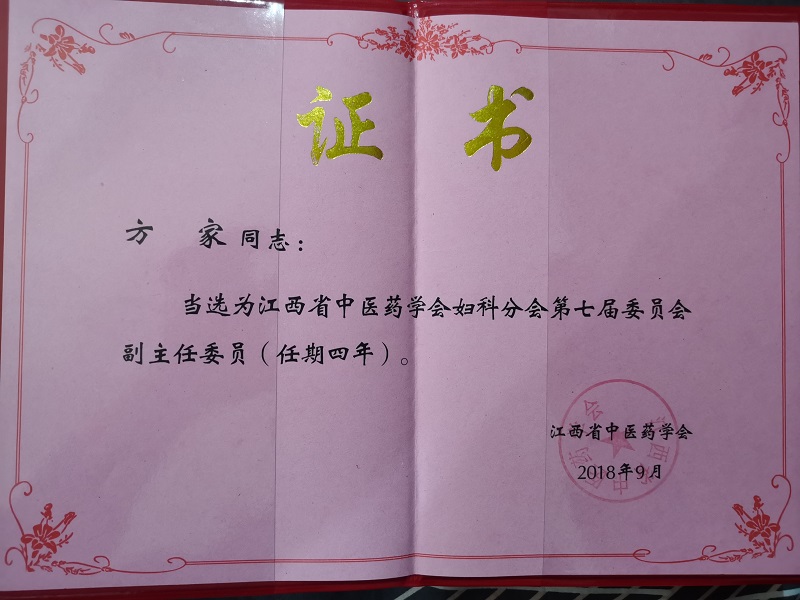 证 书
方 家 同志：
当选为江西省中医药学会妇科分会第七届委员会
副主任委员（任期四年）。
江西省中医药学会
2018年9月